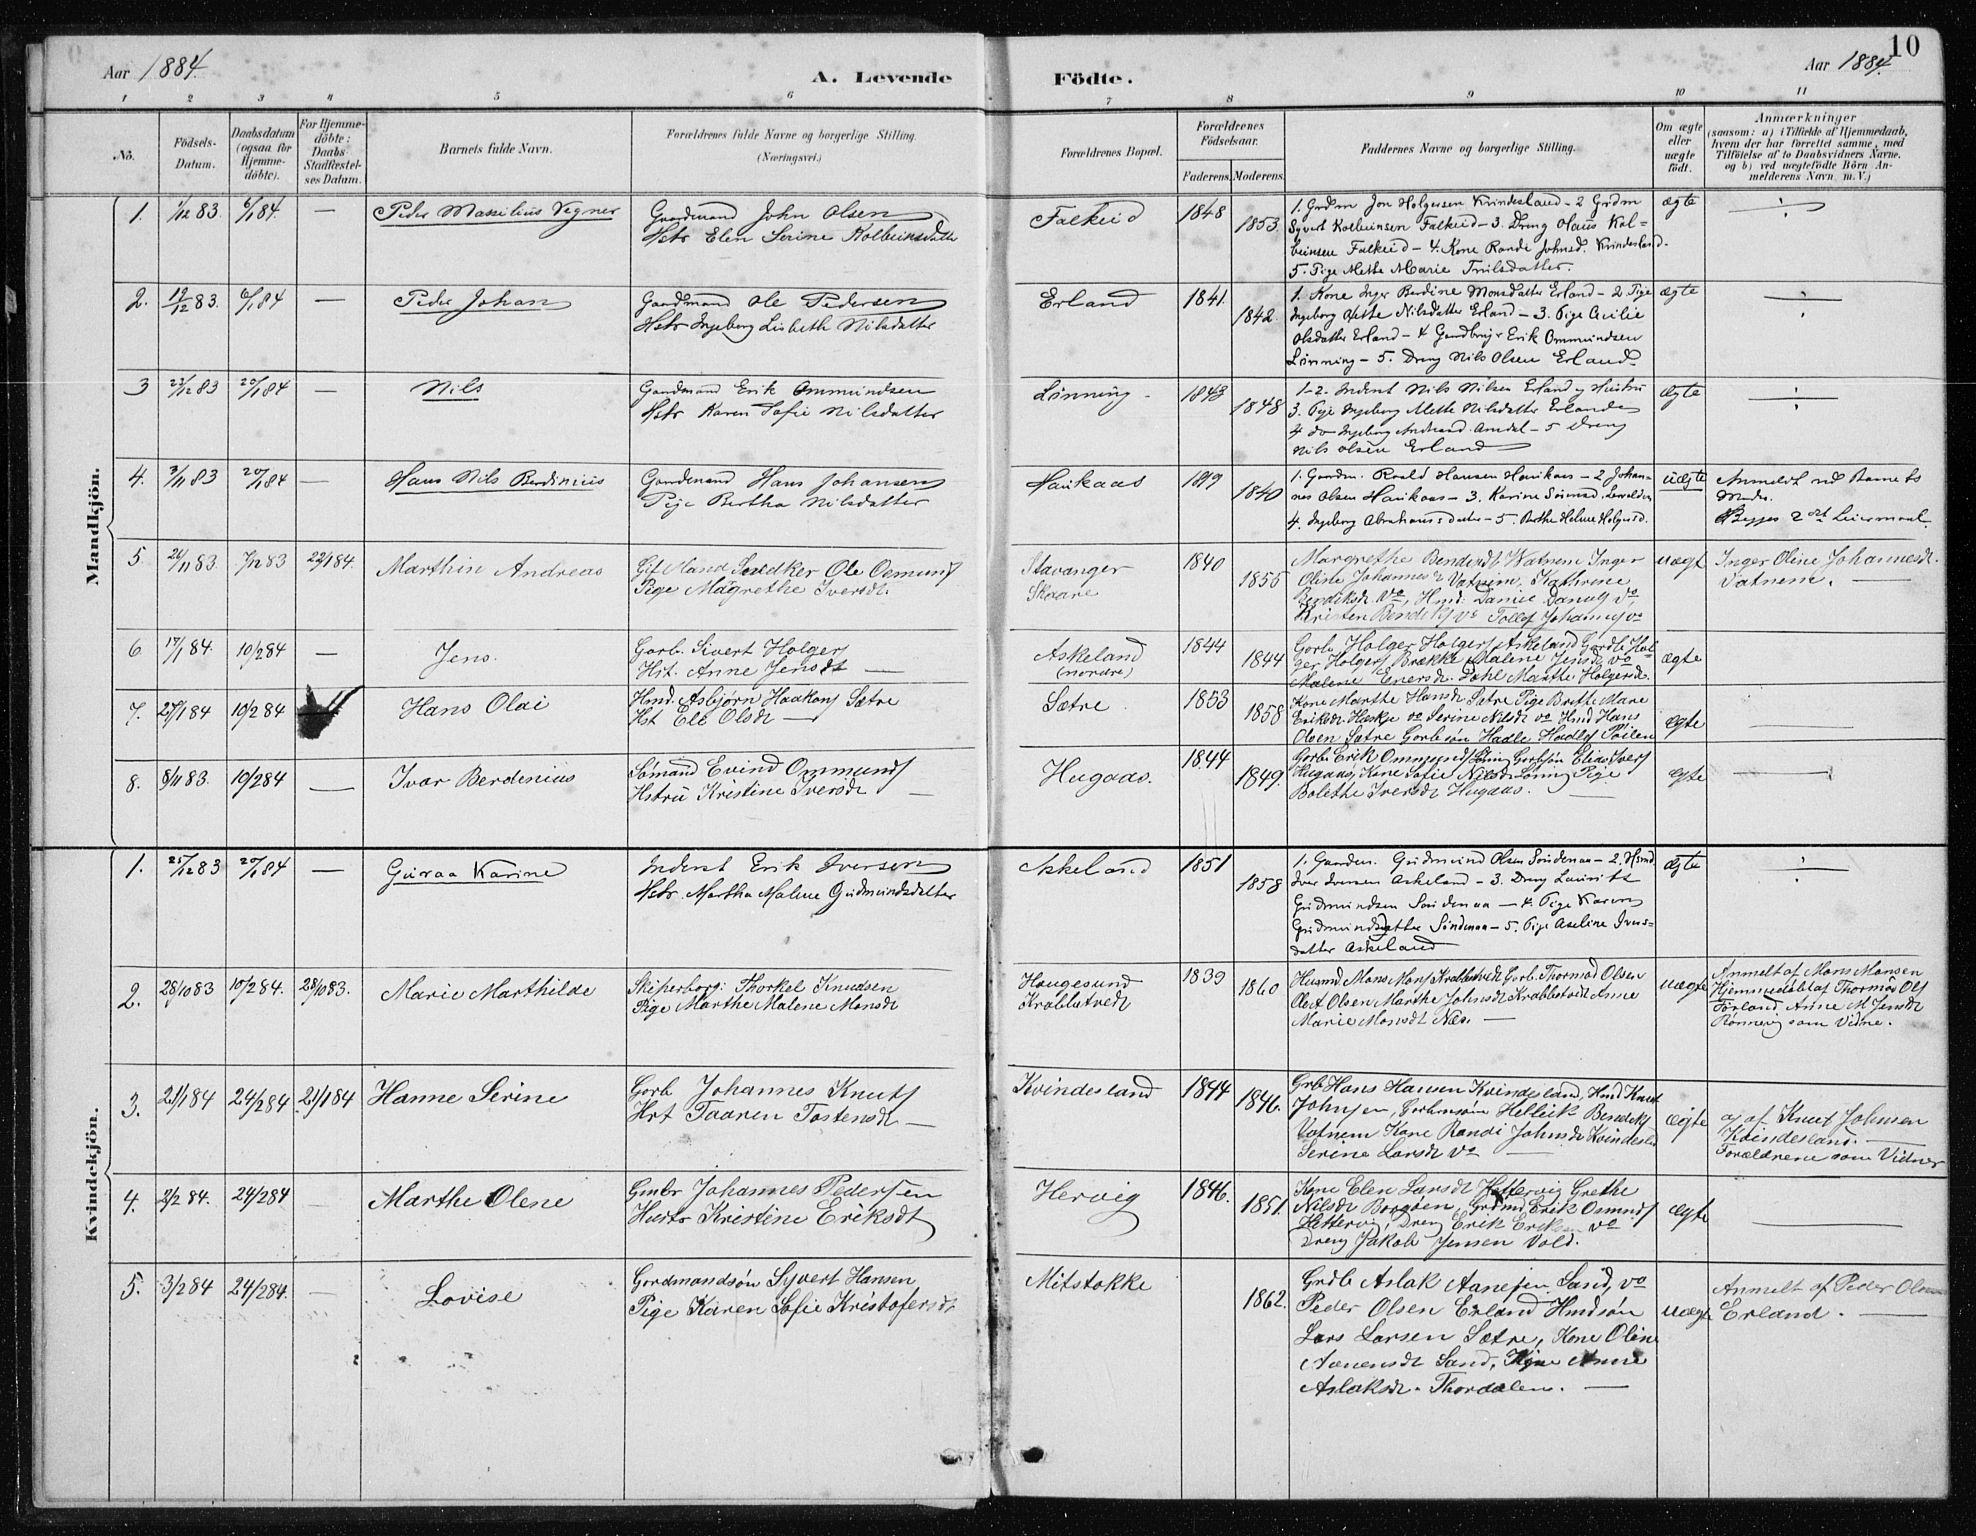 10
Aar 1884.
A. Levende Födte.
Aar 1884.
1 2 3 4 5 6 7 8 9 10 11
No.
Födsels-Datum.
Daabsdatum (ogsaa for Hjemme-döbte).
For Hjemme-döbte: Daabs Stadfæstel-ses Datum.
Barnets fulde Navn.
Forældrenes fulde Navne og borgerlige Stilling.
(Næringsvei.)
Forældrenes Bopæl.
Forældrenes Födselsaar.
Faderens. Moderens.
Faddernes Navne og borgerlige Stilling.
Om ægte eller uægte födt.
Anmærkninger
(saasom: a) i Tilfælde af Hjemmedaab,
hvem der har forrettet samme, med
Tilföielse af to Daabsvidners Navne.
og b) ved uægtefödte Börn An-
melderens Navn m. V.)
Mandkjön.
1. 1/12 83. 6/1 84. — Peder Massilius Vegner
Gaardmand John Olsen
Hstr Elen Serine Kolbeinsdatter
Falkeid 1848 1853.
1. Grdm Jon Holgersen Kvindesland - 2 Grdm
Syvert Kolbeinsen Falkeid - 3. Dreng Hans Kol-
beinsen Falkeid - 4. Kone Randi Johnsd. Kvindesland.
5. Pige Mette Marie
ægte
2. 19/12 83. 6/1 84 — Peder Johan
Gaardmand Ole Pedersen
Hstr Ingeborg Lisbeth Nilsdatter
Erland 1841. 1842.
1. Kone Inger Berdine Monsdatter Erland - 2. Pige
Ingeborg Mette Nilsdatter Erland - 3. Pige Cecilie
Olsdatter Erland - 4 Gaardbruger Erik Ommundsen
Lönning - 5. Dreng Nils Olsen Erland
ægte
3 23/12 83 20/1 84 — Nils
Gaardmand Erik Ommundsen
Hstr Karen Sofie Nilsdatter
Lönning - 1843 1848
1-2. Inderst Nils Nilsen Erland og Hustru
3. Pige Ingeborg Mette Nilsdatter Erland
4 do Ingeborg - 5 Dreng
Nils Olsen Erland
ægte
4. 3/11 83 20/1 84 — Hans Nils Berdinius
Gaardmand Hans Johansen
Pige Bertha Nilsdatter
Haukaas 1819 1840
1. Gaardm. Roald Hansen Haukaas - 2 Johan-
nes Olsen Haukaas - 3. Karine
4. Ingeborg Abrahamsdatter - 5. Berthe Helene Holgersd.
uægte
Anmeldt ved Barnets
Moder.
Begges 2det Leiermaal.
5 26/11 83. 7/12 83 22/1 84. Marthin Andreas
Gif Mand Ole Osmunds
Pige Magrethe Iversdt.
Stavanger
Skaare
1840 1855
Margrethe Bendixdt Watnem Inger
Oline Johannesdt Vatnem. Kathrine
Bendiksdt Do, Hmd: Daniel Do,
Kristen Bendiks Do Tollef Johannes Do
uægt
Inger Oline Johannesdt.
Vatnem. —
6 17/1 84. 10/2 84 — Jens.
Gorb. Sivert Holgers
Hst. Anne Jensdt —
Askeland
(nordre)
1844 1844
Gorb Holger Holgers Askeland Gordb Hol-
ger Holgers Brække Malene Jensdt Do
Malene Enersdt. Dahl Marthe Holgersdt.
ægte
7. 27/1 84 10/2 84 Hans Olai
Hmd. Asbjørn Haakons Sætre
Hst Ele Olsdt —
Sætre. 1853 1858
Kone Marthe Hansdt Sætre Pige Brithe Mare
Eriksdt Do Serine Nilsdt Do Hmd Hans
Olsen Sætre Gorbsøn Hadle Hadles
ægte
8. 8/11 83. 10/2 84 — Ivar Berdenius
Sømand Evind Ommunds
Hstru Kristine Iversdt —
Hugaas. 1844 1849.
Gorb. Erik Ommunds Lönning Gorbsøn Elias Ivers
Hugaas, Kone Sofie Nilsdt Lönning Pige
Bolethe Iversdt Hugaas. —
ægte
Kvindekjön.
1. 25/12 83 20/1 84 — Guraa Karine
Inderst Erik Iversen
Hstr. Martha Malene Gudmundsdatter
Askeland 1851 1858
1. Gaardm. Gudmund Olsen Söndenaa - 2. Hsmd
Iver Iversen Askeland - 3. Dreng Laurits
Gudmundsen Söndenaa - 4. Pige Karen
Gudmundsdatter Söndenaa - 5. Pige Aseline Ivers-
datter Askeland
Ægte
2. 28/10 83 10/2 84. 28/10 83. Marie Marthilde
Skipperborg: Thorkel Knudsen
Pige Marthe Malene Monsdt
Haugesund
Krabbatvedt
1839 1860
Husmd Mons Mons Krabbatvedt Gorb. Thormod Olsen
Olsen Marthe Johnsdt Krabbatvedt Anne
Marie Monsdt Næs. —
uægte
Anmelt af Mons Monsen
Hjemmedøbt af Thormod Ols
Førland Anne M. Jensdt
Rönnevig som Vidne.
3. 21/1 84 24/2 84 21/1 84 Hanne Serine
Gorb Johannes Knuts
Hst Taaren Tostensdt —
Kvindesland 1844 1846.
Grb Hans Hansen Kvindesland, Hmd Knut
Johnsen, Gorbmsøn Helleik Bendeks
Vatnem Kone Randi Johnsdt Kvindesld
Serine Larsdt Do —
ægte
af Knut Johnsen
Kvindesland. —
Forældrene som Vidner
4. 2/2 84. 24/2 84 — Marthe Olene
Gmbr Johannes Pedersen
Hustr Kristine Eriksdt
Hervig 1846. 1851.
Kone Elen Larsdt Hettervig Grethe
Nilsdt Borgøen, Grdmd Erik Osmunds
Hettervig Dreng Erik Do
Dreng Jakob Jensen Vold.
ægte
5. 3/2 84 24/2 84. — Lovise
Gordmandsøn Syvert Hansen
Pige Karen Sofie Kristofersdt
Mitstokke 1862.
Grdb Aslak Aanesen Sand, Do
Peder Olsen Erland Hmdsøn
Lars Larsen Sætre, Kone Oline
Sand, Kone Anne
Aslaksdt. Thordalen. —
uægte
Anmelt af Peder Olsen
Erland. —